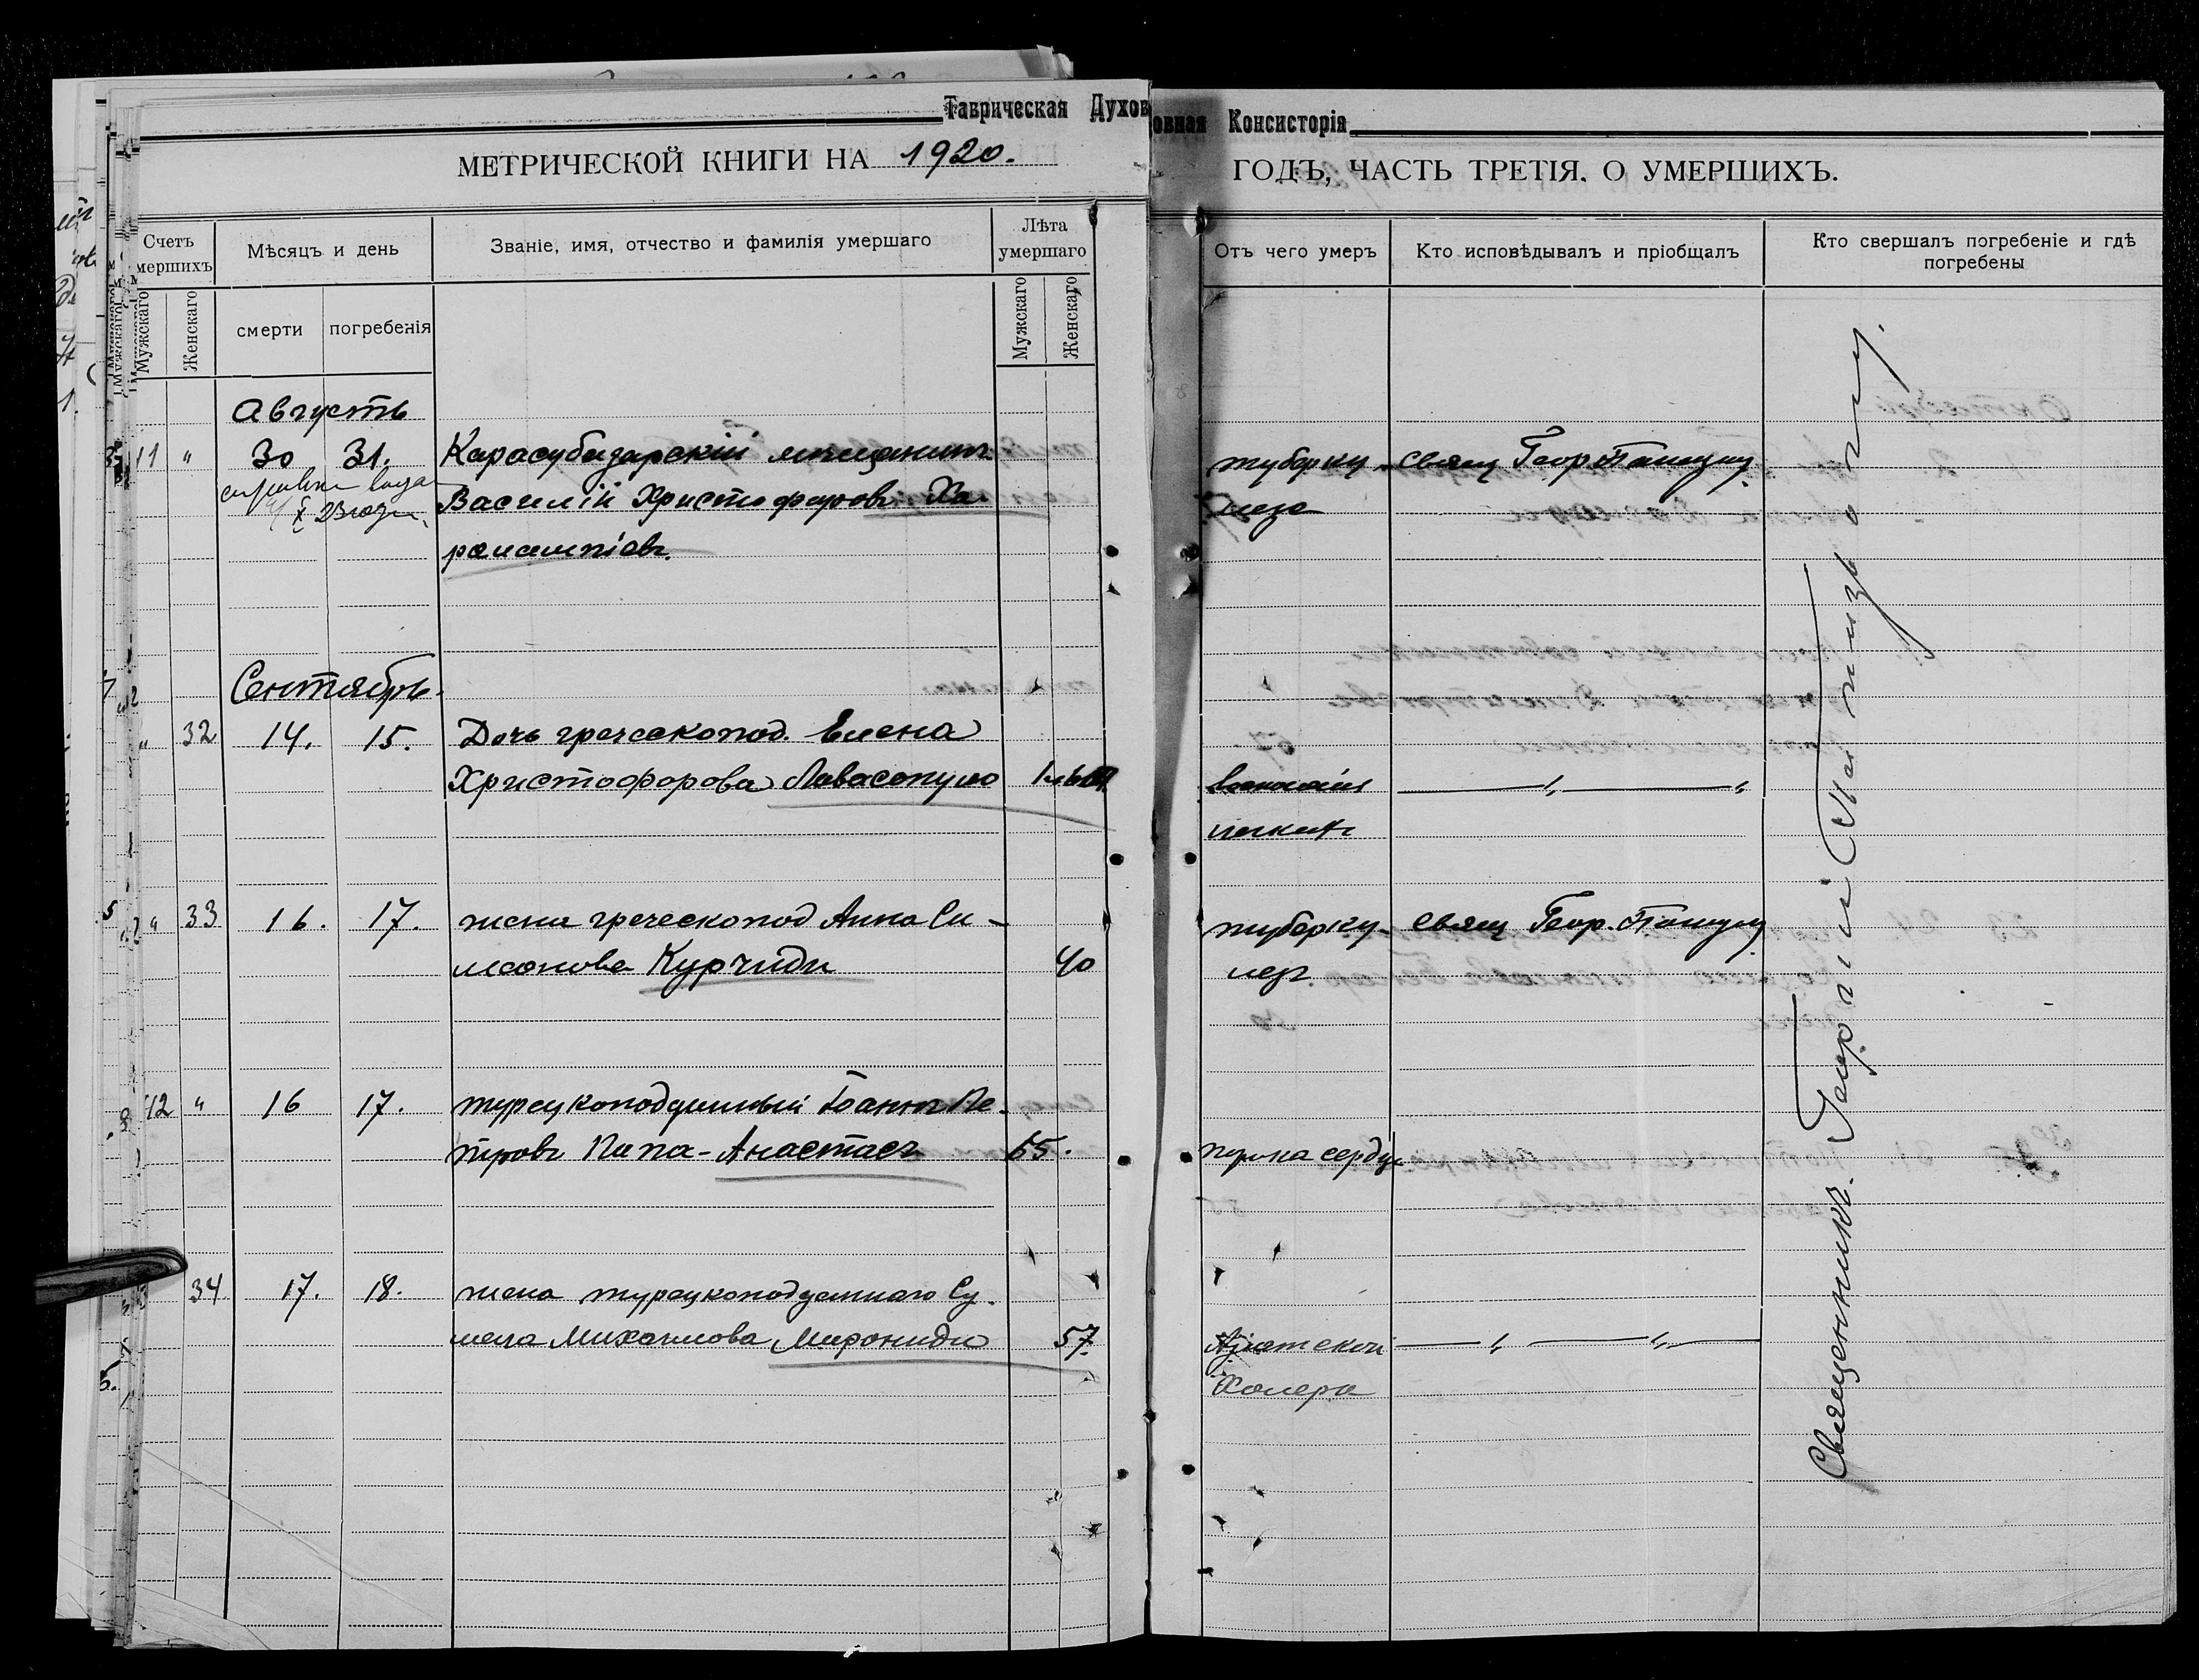 Таврическая Духовная Консисторія
МЕТРИЧЕСКОЙ КНИГИ НА 1920. ГОДЪ, ЧАСТЬ ТРЕТІЯ, О УМЕРШИХЪ.
Счетъ умершихъ
Мужскаго
Женскаго
Мѣсяцъ и день
смерти
погребенія
Званіе, имя, отчество и фамилія умершаго
Лѣта умершаго
Мужскаго
Женскаго
Отъ чего умеръ
Кто исповѣдывалъ и пріобщалъ
Кто свершалъ погребеніе и гдѣ
погребены
Августъ
11 " 30 31. Карасубазарскій мѣщанинъ
Василій Христофоровъ Ха-
ралампіевъ.
23 года
туберку-
леза
свящ Геор
Сентябрь.
" 32 14. 15. Дочь греческопод. Елена
Христофорова Лавасопуло
легкихъ
" 33 16. 17. жена греческопод Анна Си-
меонова Курчиди 40
туберку-
лезъ
свящ Геор.
12 " 16 17. турецкоподданный Іоаннъ Пе-
тровъ Папа-Анастасъ 65.
порока сердца
34 17. 18. жена турецкоподданнаго Су-
мела Михаилова Мирониди 57.
Азіатской
Холера
Священникъ Георгій